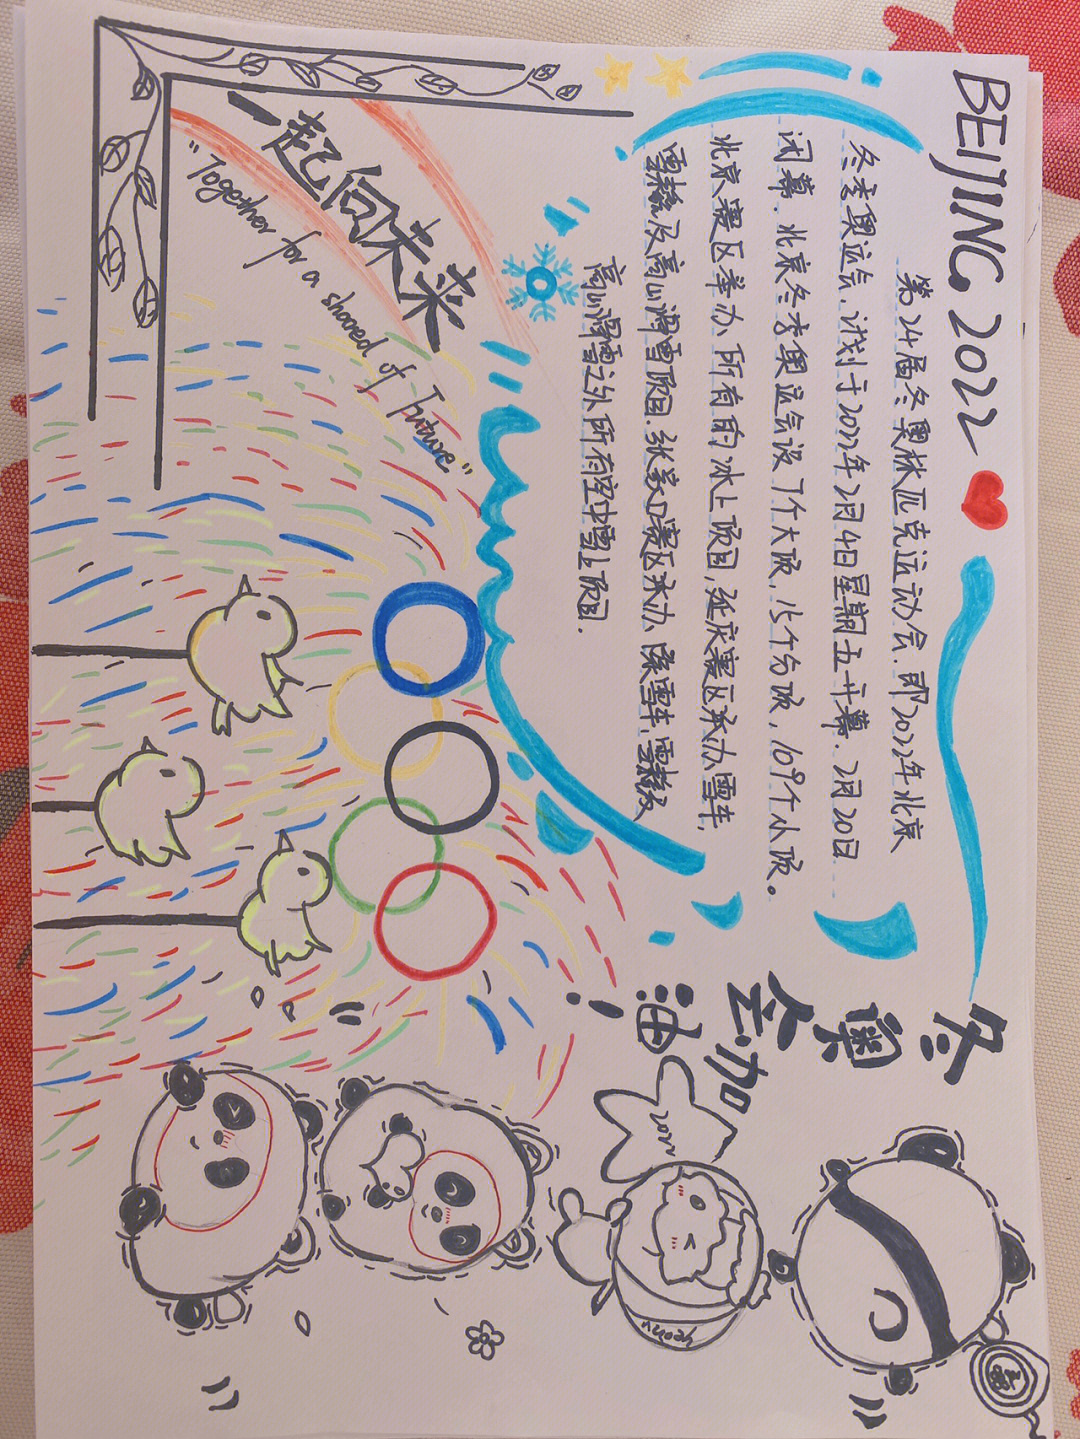 BEIJING. 2022
第24届冬奥林匹克运动会.即2022年北京
冬季奥运会.计划于2022年2月4日星期五开幕.2月20日
闭幕.北京冬季奥运会设7个大项,15个分项,109个小项。
北京赛区举办所有的冰上项目,延庆赛区承办雪车,
雪橇及高山滑雪项目.张家口赛区承办除雪车,雪橇及
高山滑雪之外所有空中雪上项目.
冬奥会加油!
一起向未来
"Together for a shared of Future"